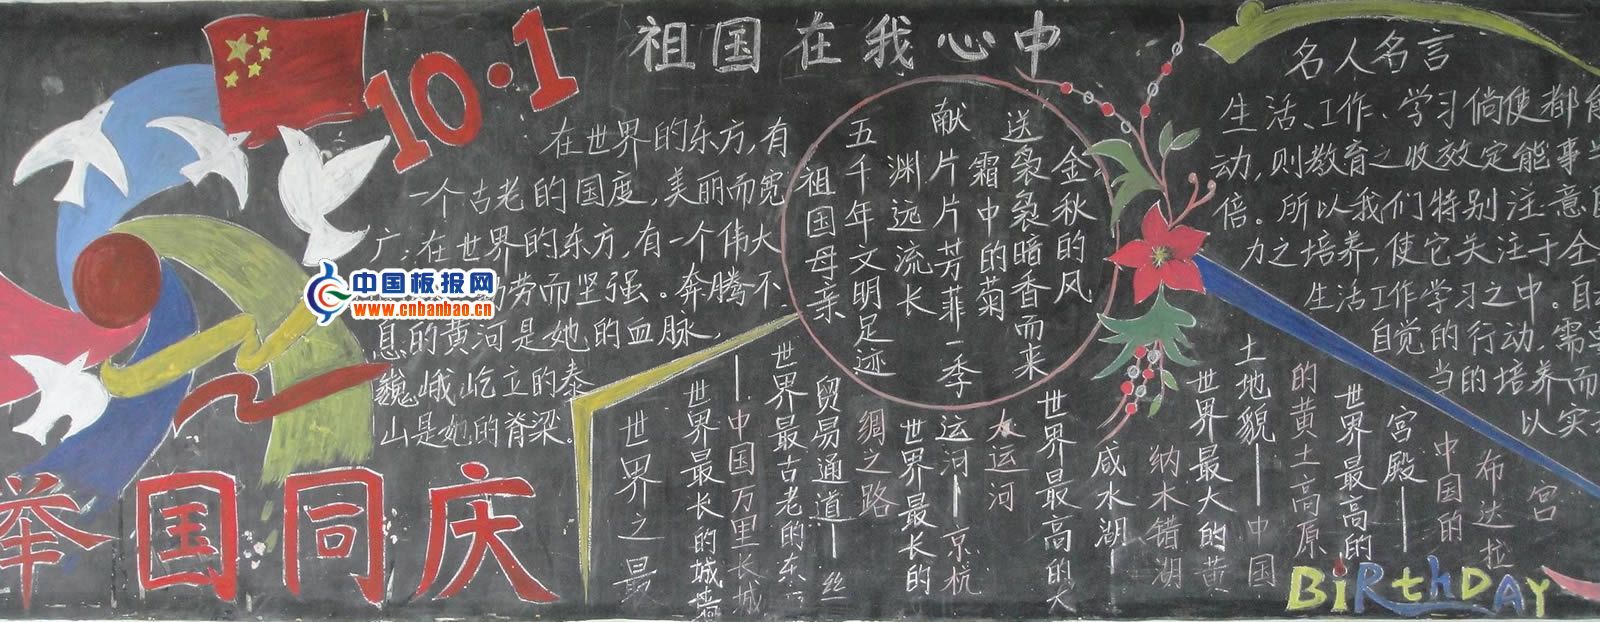 10·1
祖国在我心中
在世界的东方,有
一个古老的国度,美丽而宽
广;在世界的东方,有一个伟大
劳而坚强。奔腾不
息的黄河是她的血脉,
巍峨屹立的泰
山是她的脊梁。
中国板报网
www.cnbanbao.cn
举国同庆
金秋的风
送袅袅暗香而来
霜中的菊
献片片芳菲一季
渊远流长
五千年文明足迹
祖国母亲
世界之最
世界最长的城墙
——中国万里长城
世界最古老的东
贸易通道——丝
绸之路
世界最长的
运河——京杭
大运河
世界最高的大
咸水湖——
纳木错湖
世界最大的黄
土地貌——中国
的黄土高原
世界最高的
宫殿——
中国的
布达拉
宫
名人名言
生活、工作、学习倘使都
动,则教育之收效定能事半
倍。所以我们特别注意自
力之培养,使它关注于全
生活工作学习之中。自
自觉的行动,需要
当的培养而
以实
BiRthDAY